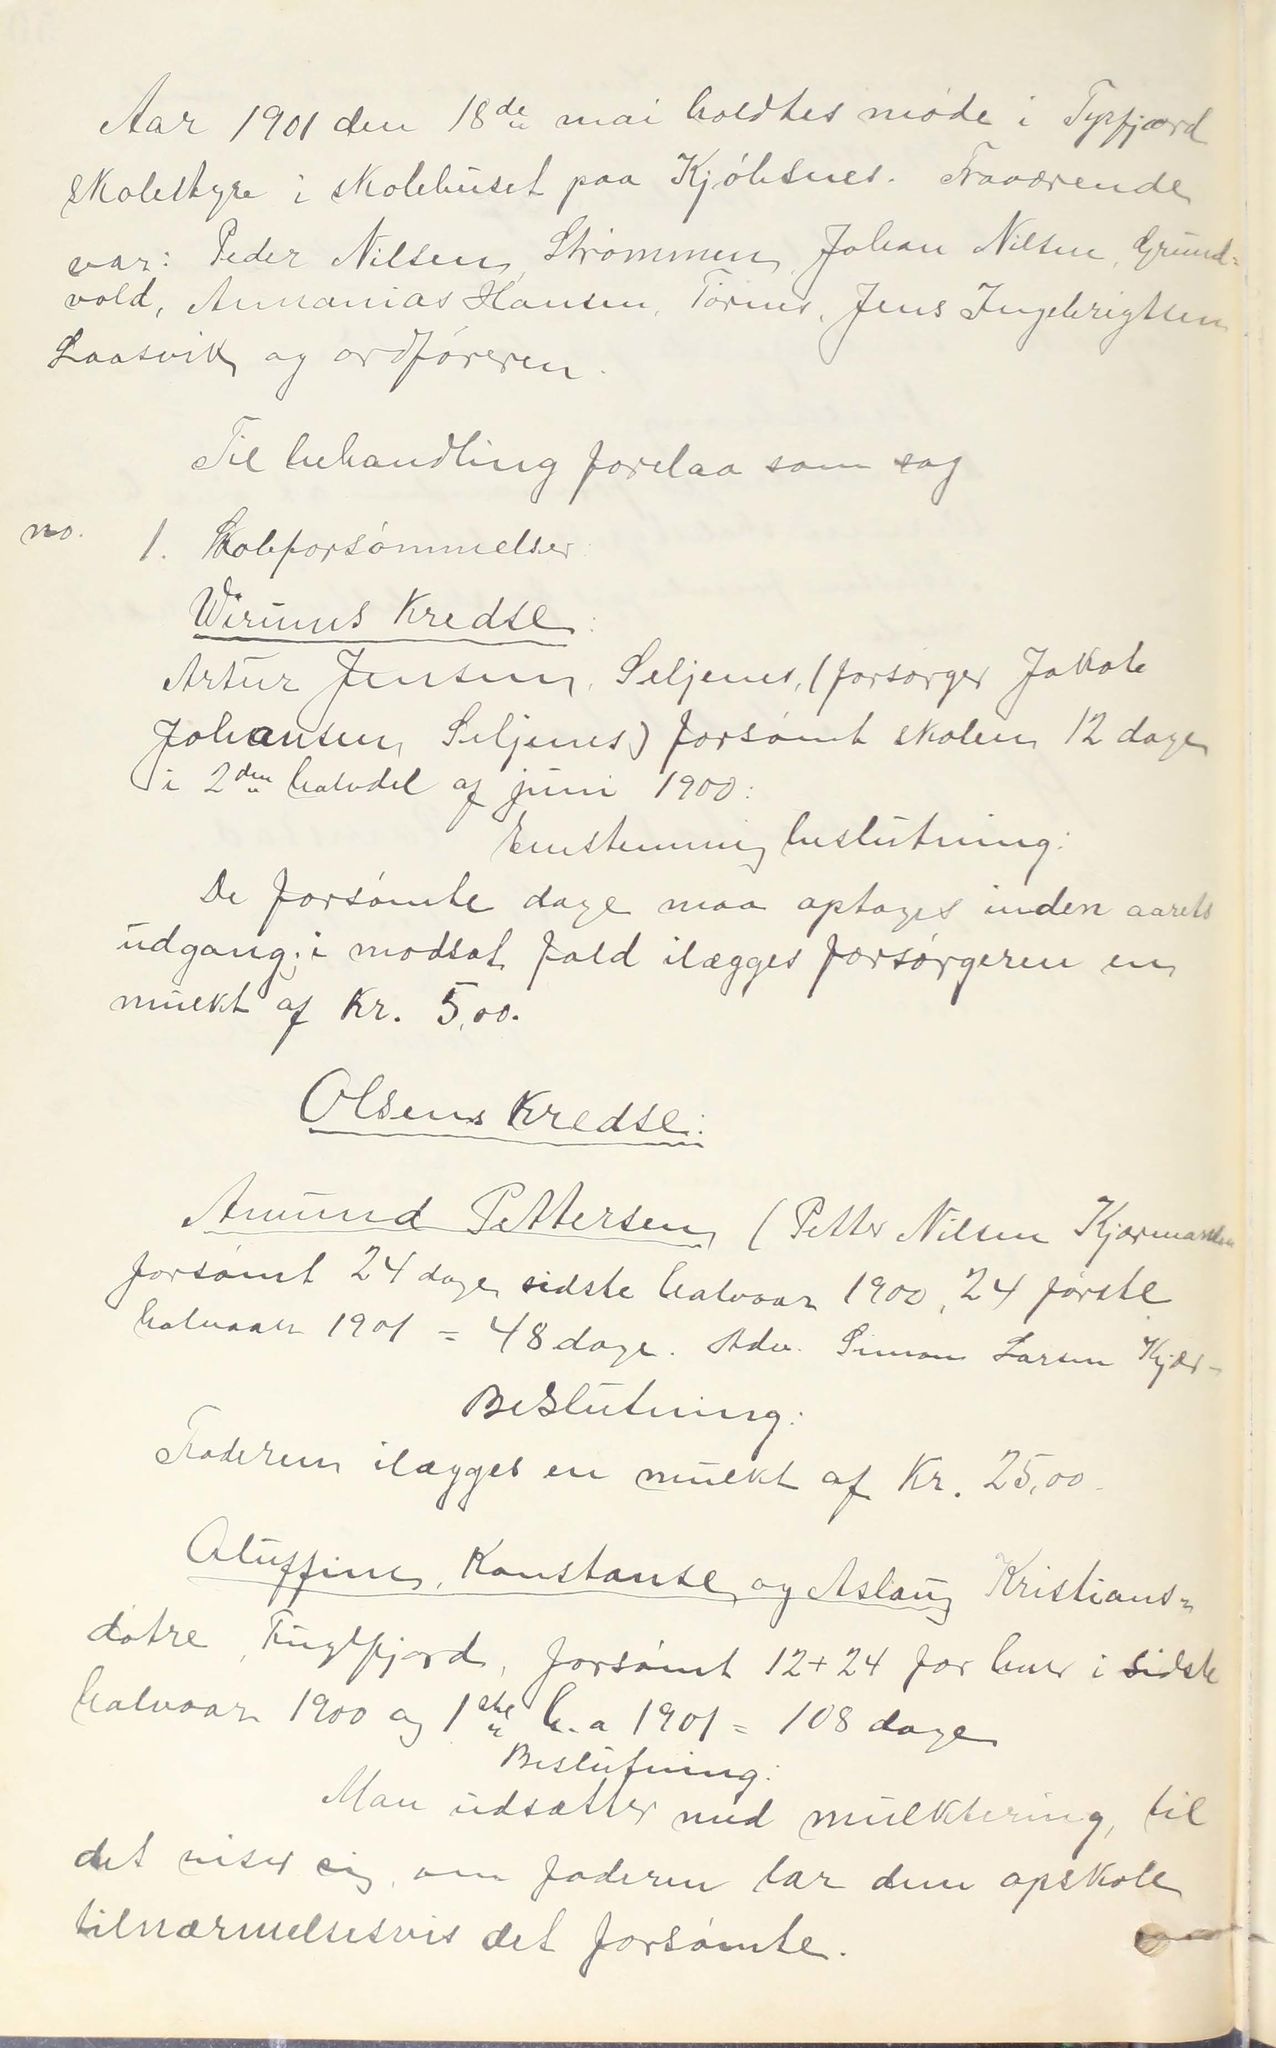 Aar 1901 den 18de mai holdtes møde i Tysfjord
skolestyre i skolehuset paa Kjøbsnes. Fraværende
var: Peder Nilsen, Strømmen, Johan Nilsen, Grund=
vold, Annanias Hansen, Tørnes, Jens Ingebrigtsen
Laasvik og ordføreren.
Til behandling forelaa som sag
no. 1. Skoleforsømmelser:
Wirums Kredse:
Artur Jensen, Seljenes, (forsørger Jakob
Johansen, Seljenes) forsømt skolen 12 dage
i 2den halvdel af juni 1900:
Enstemmig beslutning:
De forsømte dage maa optages inden aarets
udgang; i modsat fald ilægges forsørgeren en
mulkt af Kr. 5,00.
Olsens Kredse:
Amund Pettersen (Petter Nilsen
forsømt 24 dage sidste halvaar 1900, 24 første
halvaar 1901 = 48 dage. Adv. Simon Larsen Kjær-
Beslutning:
Faderen ilægges en mulkt af Kr. 25,00.
Oluffine, Konstanse og Aslaug Kristians=
døtre, Fuglfjord, forsømt 12+24 for hver i sidste
halvaar 1900 og 1ste h.a 1901 = 108 dage
Beslutning:
Man udsætter med mulktering, til
det viser sig, om faderen lar dem opskole
tilnærmelsesvis det forsømte.